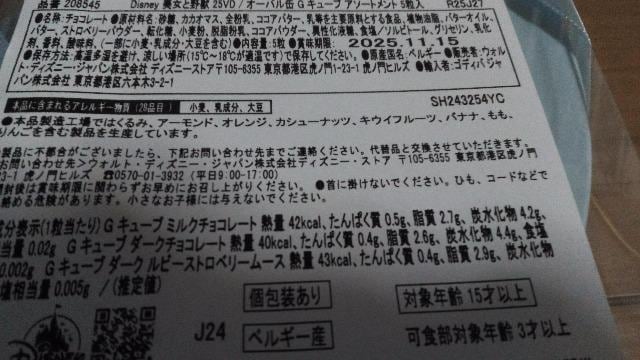 品番 208545 Disney 美女と野獣 25VD / オーバル缶 G キューブ アソートメント 5粒入 R25J27
●名称：チョコレート●原材料名：砂糖、カカオマス、全粉乳、ココアバター、乳等を主要原料とする食品、植物油脂、バターオイル、
バター、ストロベリーパウダー、転化糖、小麦粉、脱脂粉乳、ココアパウダー、異性化液糖、食塩／ソルビトール、グリセリン、乳化
剤、香料、酸味料、（一部に小麦・乳成分・大豆を含む）●内容量：5粒●賞味期限： 2025.11.15
●保存方法：高温多湿を避け、涼しい場所（15℃～18℃が適温です）で保存してください。●原産国名：ベルギー●販売者：ウォル
ト・ディズニー・ジャパン株式会社 ディズニーストアT〒105-6355 東京都港区虎ノ門1-23-1 虎ノ門ヒルズ ●輸入者：ゴディバ ジャ
パン株式会社 東京都港区六本木3-2-1
本品に含まれるアレルギー物質（28品目） 小麦、乳成分、大豆
SH243254YC
●本品製造工場ではくるみ、アーモンド、オレンジ、カシューナッツ、キウイフルーツ、バナナ、もも、
りんごを含む製品を生産しています。
製品に不都合がございましたら、下記お問い合わせ先までご連絡ください。代替品と交換させていただきます。
お問い合わせ先＞ウォルト・ディズニー・ジャパン株式会社ディズニー・ストア 〒105-6355 東京都港区虎ノ門
虎ノ門ヒルズ ☎0570-01-3932（平日9:00-17:00）
開封後は賞味期限に関わらずお早めにお召し上がりください。 ●首に掛けないでください。ひも、コードなどで
絡める危険があります。小さなお子様には与えないでください。
成分表示（1粒当たり）G キューブ ミルクチョコレート 熱量 42kcal、たんぱく質 0.5g、脂質 2.7g、炭水化物 4.2g、
当量 0.02g G キューブ ダークチョコレート 熱量 40kcal、たんぱく質 0.4g、脂質 2.6g、炭水化物 4.4g、食塩
0.002g G キューブ ダーク ルビーストロベリームース 熱量 43kcal、たんぱく質 0.4g、脂質 2.9g、炭水化物
塩相当量 0.005g ／（推定値）
個包装あり 対象年齢 15才以上
J24 ベルギー産 可食部対象年齢 3才以上